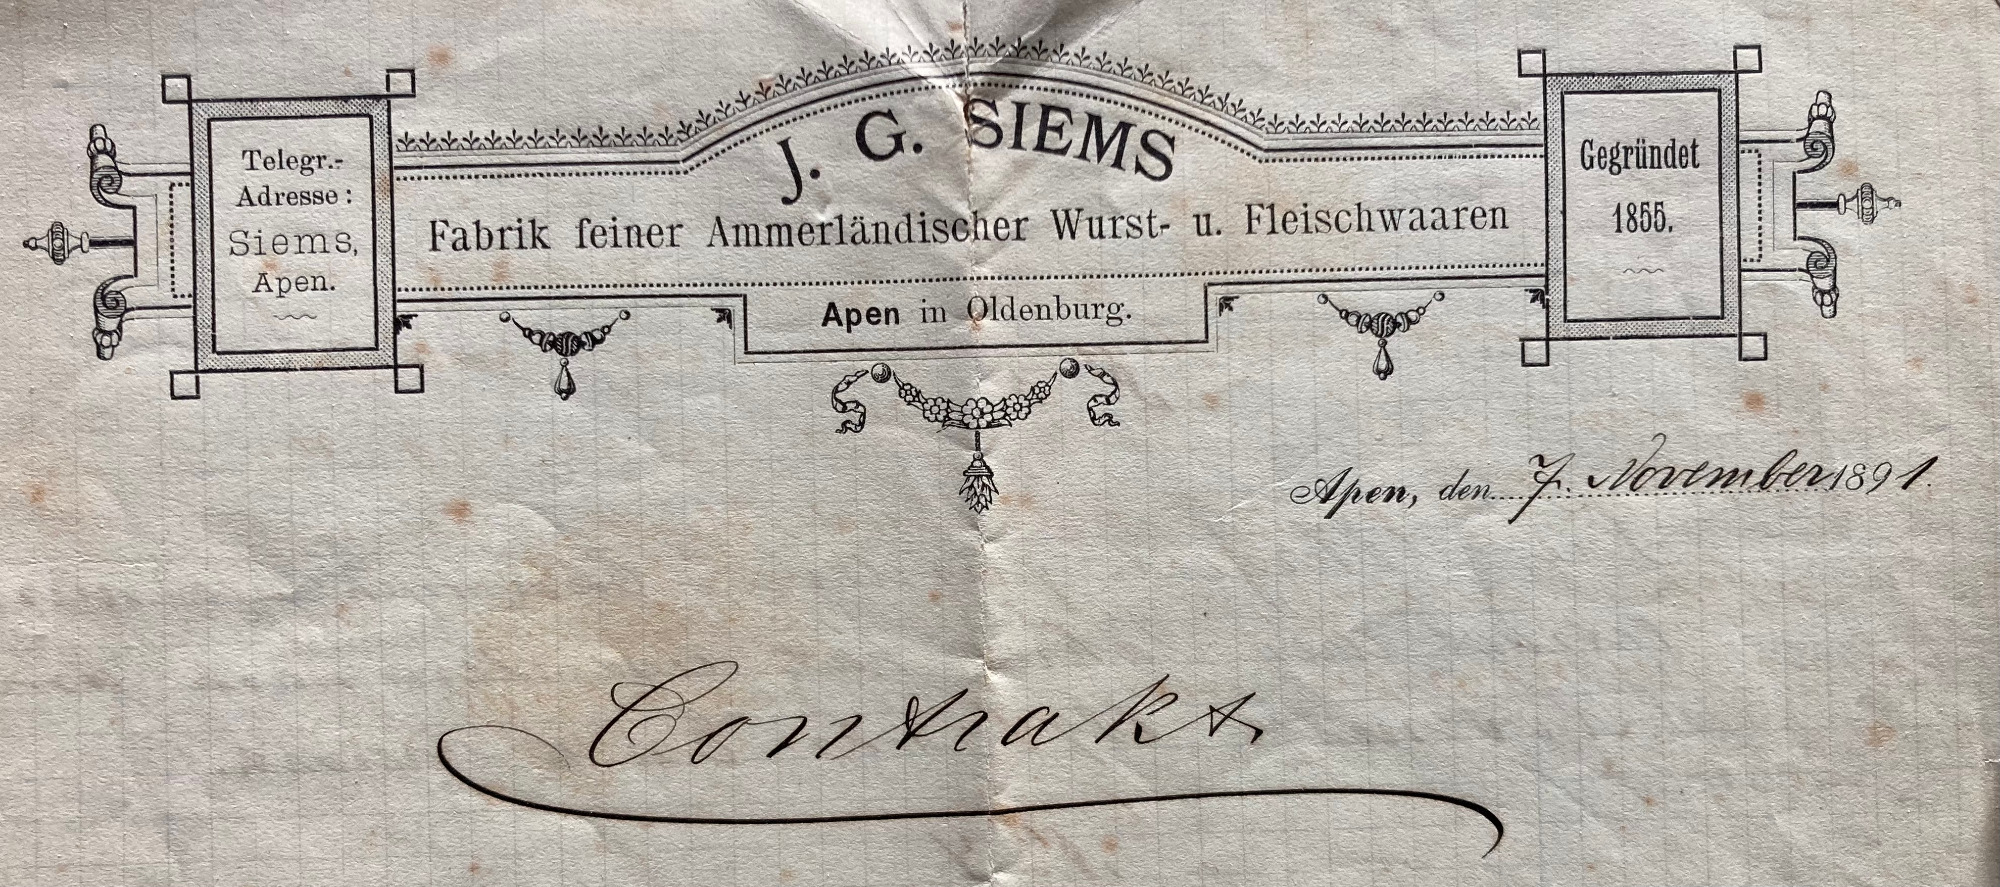 J. G. SIEMS
Telegr.-
Adresse:
Siems,
Apen.
Fabrik feiner Ammerländischer Wurst- u. Fleischwaaren
Apen in Oldenburg.
Gegründet
1855.
Apen, den 7. November 1891.
Contrakt